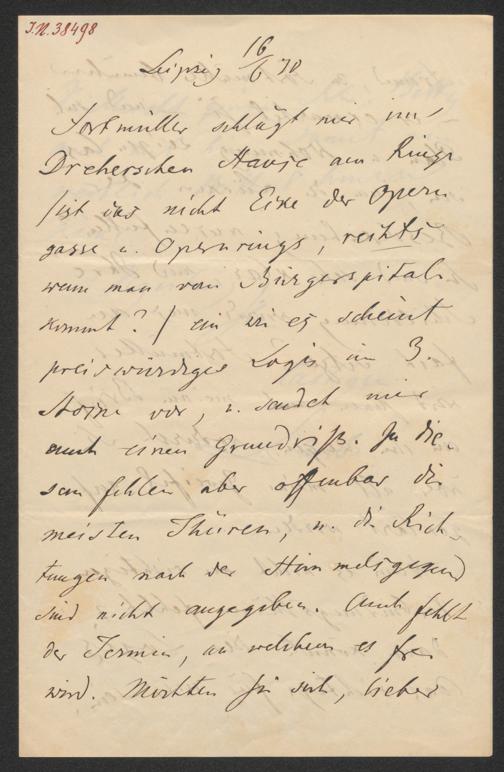 J.N. 38498
Leipzig 16/6 70
Fortmüller schlägt mir im
Dreherschen Hause am Ringe
/ist das nicht Ecke der Opern
gasse u. Opernrings, rechts
wenn man vom Bürgerspital
kommt?/ ein wie es scheint
preiswürdiges Logis im 3.
Stocke vor, u. sendet mir
auch einen Grundriß. In die-
sem fehlen aber offenbar die
meisten Thüren, u. die Rich-
tungen nach der Himmelsgegend
sind nicht angegeben. Auch fehlt
der Termin, an welchem es frei
wird. Möchten Sie sich, lieber